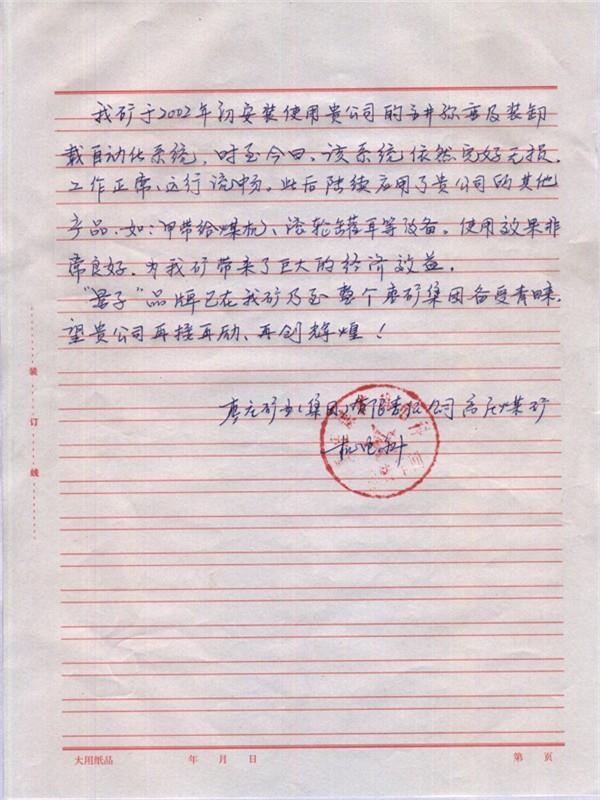 我矿于2002年初安装使用贵公司的主井称重及装卸
载自动化系统，时至今日、该系统依然完好无损，
工作正常、运行流畅。此后陆续启用了贵公司的其他
产品．如：甲带给煤机、滚轮罐耳等设备。使用效果非
常良好．为我矿带来了巨大的经济效益．
"量子"品牌已在我矿乃至整个枣矿集团备受青睐．
望贵公司再接再励、再创辉煌！
枣庄矿业（集团）有限责任公司高庄煤矿
机电科
装
订
线
大用纸品 年 月 日 第 页